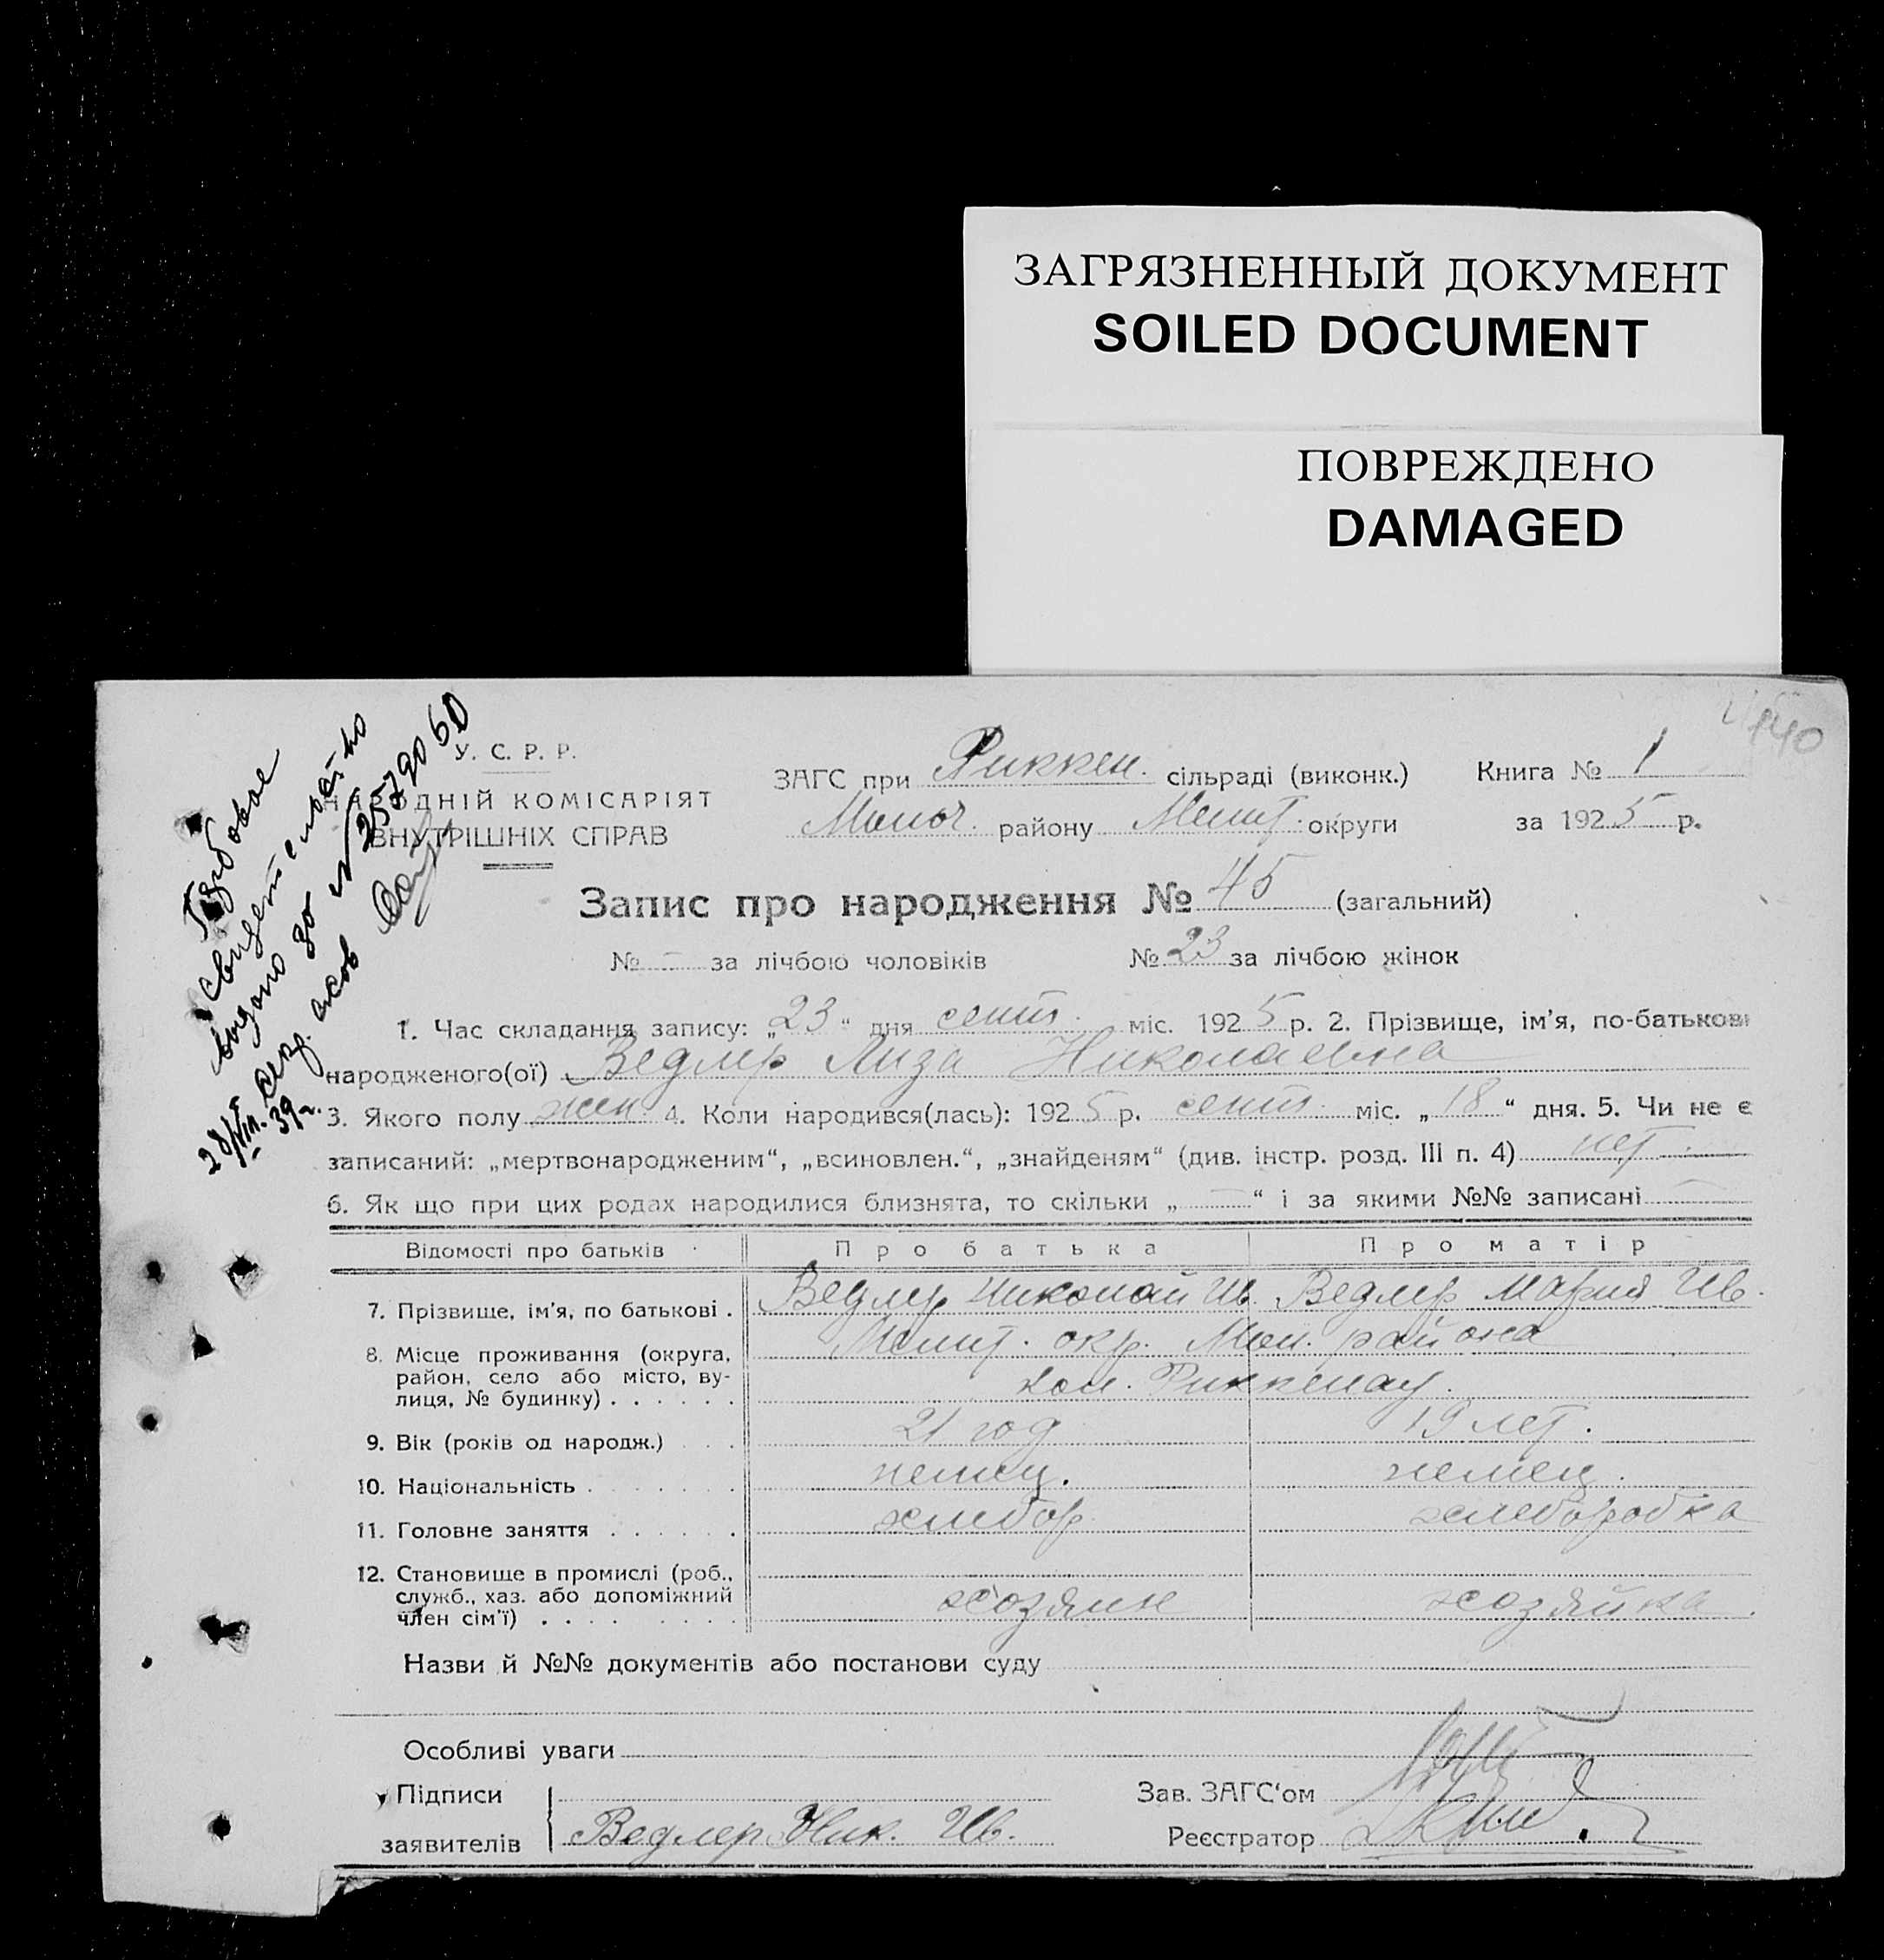 ЗАГРЯЗНЕННЫЙ ДОКУМЕНТ
SOILED DOCUMENT
ПОВРЕЖДЕНО
DAMAGED
140
У. С. Р. Р.
НАРОДНІЙ КОМІСАРІЯТ
ВНУТРІШНІХ СПРАВ
ЗАГС при Риккен. сільраді (виконк.) Книга № 1
Молоч. району Мелит. округи за 1925 р.
Запис про народження № 45 (загальний)
№ - за лічбою чоловіків № 23 за лічбою жінок
видано
№ 2579060
28/VIII. 39 г.
1. Час складання запису: „23“ дня сент. міс. 1925 р. 2. Прізвище, ім’я, по-батькові
народженого(ої) Ведлер Лиза Николаевна
3. Якого полу жен. 4. Коли народився(лась): 1925 р. сент. міс. „18“ дня. 5. Чи не є
записаний: „мертвонародженим“, „всиновлен.“, „знайденям“ (див. інстр. розд. III п. 4) нет
6. Як що при цих родах народилися близнята, то скільки „—“ і за якими №№ записані —
Відомості про батьків Про батька Про матір
7. Прізвище, ім’я, по батькові . Ведлер Николай Ив. Ведлер Мария Ив.
8. Місце проживання (округа, Мелит. окр. Мол. района
район, село або місто, ву-
лиця, № будинку) . . . . . . кол. Риккенау.
9. Вік (років од народж.) . . . 21 год 19 лет.
10. Національність . . . . . . . немец. немец.
11. Головне заняття . . . . . . хлебор. хлеборобка
12. Становище в промислі (роб.,
служб., хаз. або допоміжний
член сім’ї) . . . . . . . . . хозяин хозяйка.
Назви й №№ документів або постанови суду
Особливі уваги
Підписи Зав. ЗАГС‘ом
заявителів Ведлер Ник. Ив. Реєстратор